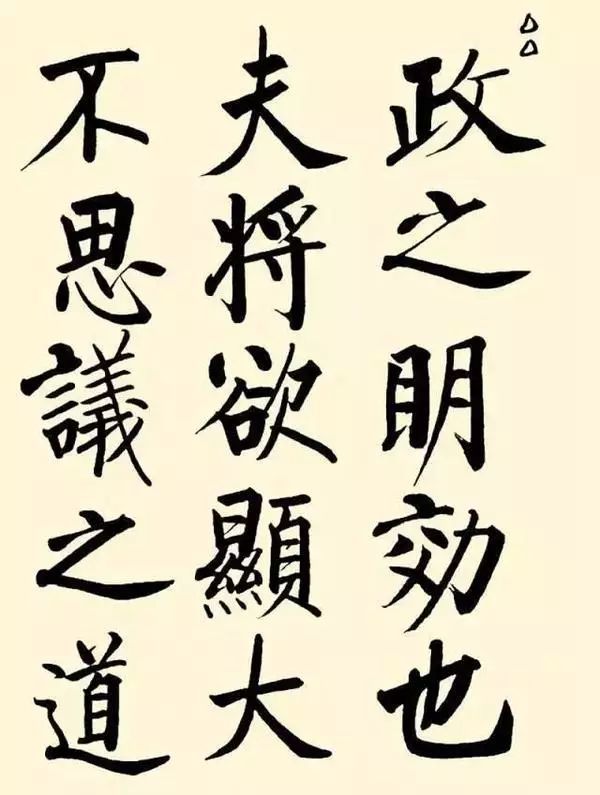 政之明効也
夫将欲顯大
不思議之道